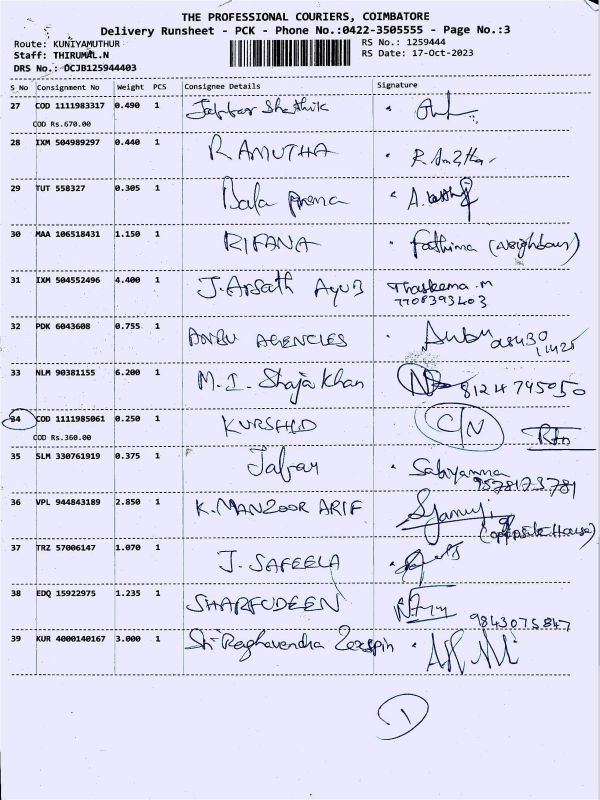 THE PROFESSIONAL COURIERS, COIMBATORE
Delivery Runsheet - PCK - Phone No.:0422-3505555 - Page No.:3
Route: KUNIYAMUTHUR RS No.: 1259444
Staff: THIRUMAL.N RS Date: 17-Oct-2023
DRS No.: DCJB125944403
S_No Consignment No Weight PCS Consignee Details Signature
27 COD 1111983317 0.490 1 Jabbar Shathik
COD Rs.670.00
28 IXM 504989297 0.440 1 RAMUTHA
29 TUT 558327 0.305 1 Bala
30 MAA 106518431 1.150 1 RIFANA Fathima (Neighbour)
31 IXM 504552496 4.400 1 J.Arsath Ayub Thaskema.M
7708393403
32 PDK 6043608 0.755 1 ANBU AGENCIES Anbu
33 NLM 90381155 6.200 1 M.I. Shaja Khan 8124795050
34 COD 1111985061 0.250 1 KURSHID C/N
COD Rs.360.00 RTO
35 SLM 330761919 0.375 1 Jafar
9578173781
36 VPL 944843189 2.850 1 K.MANZOOR ARIF
(opposite House)
37 TRZ 57006147 1.070 1 J. SAFEELA
38 EDQ 15922975 1.235 1 SHARFUDEEN
9843075847
39 KUR 4000140167 3.000 1 Sri Raghavendra
1